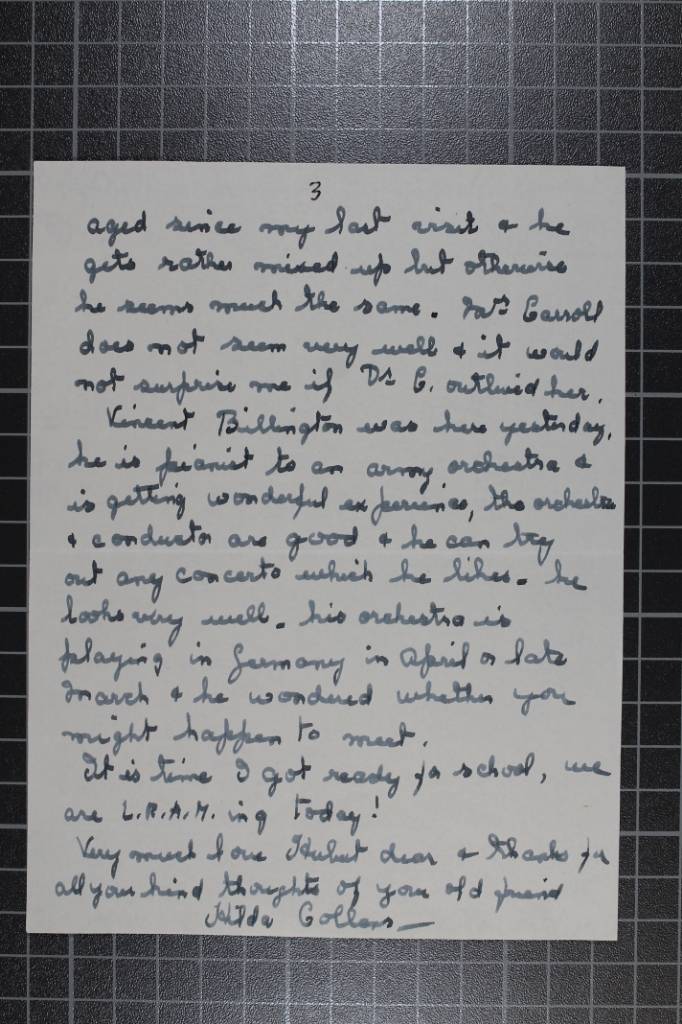 3
aged since my last visit & he
gets rather mixed up but otherwise
he seems much the same. Mrs Carroll
does not seem very well & it would
not surprise me if Dr C. outlived her.
Vincent Billington was here yesterday,
he is pianist to an army orchestra &
is getting wonderful experience, the orchestra
& conductor are good & he can try
out any concerto which he likes. he
looks very well. his orchestra is
playing in Germany in April or late
March & he wondered whether you
might happen to meet.
It is time I got ready for school, we
are L.R.A.M. ing today!
Very much love Hubert dear & thanks for
all your kind thoughts of your old friend
Hilda Collens